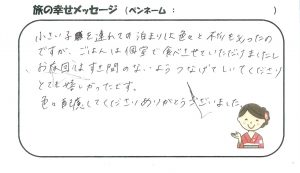 旅の幸せメッセージ（ペンネーム：　　　）
小さい子を連れての泊まりは色々と不安だったの
ですが、ごはんは個室で食べさせていただけましたし
お布団はすき間のないようつなげてしいてくださり
とても嬉しかったです。
色々配慮してくださりありがとうございました。